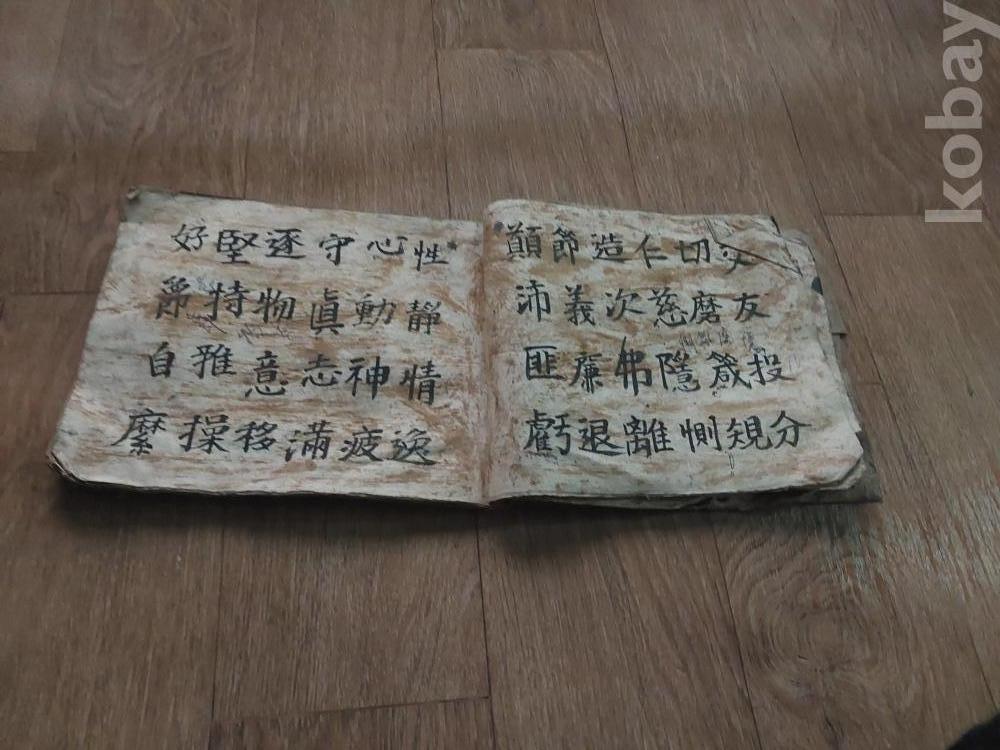 交友投分
切磨箴規
仁慈隱惻
造次弗離
節義廉退
顚沛匪虧
性靜情逸
心動神疲
守眞志滿
逐物意移
堅持雅操
好爵自縻
kobay